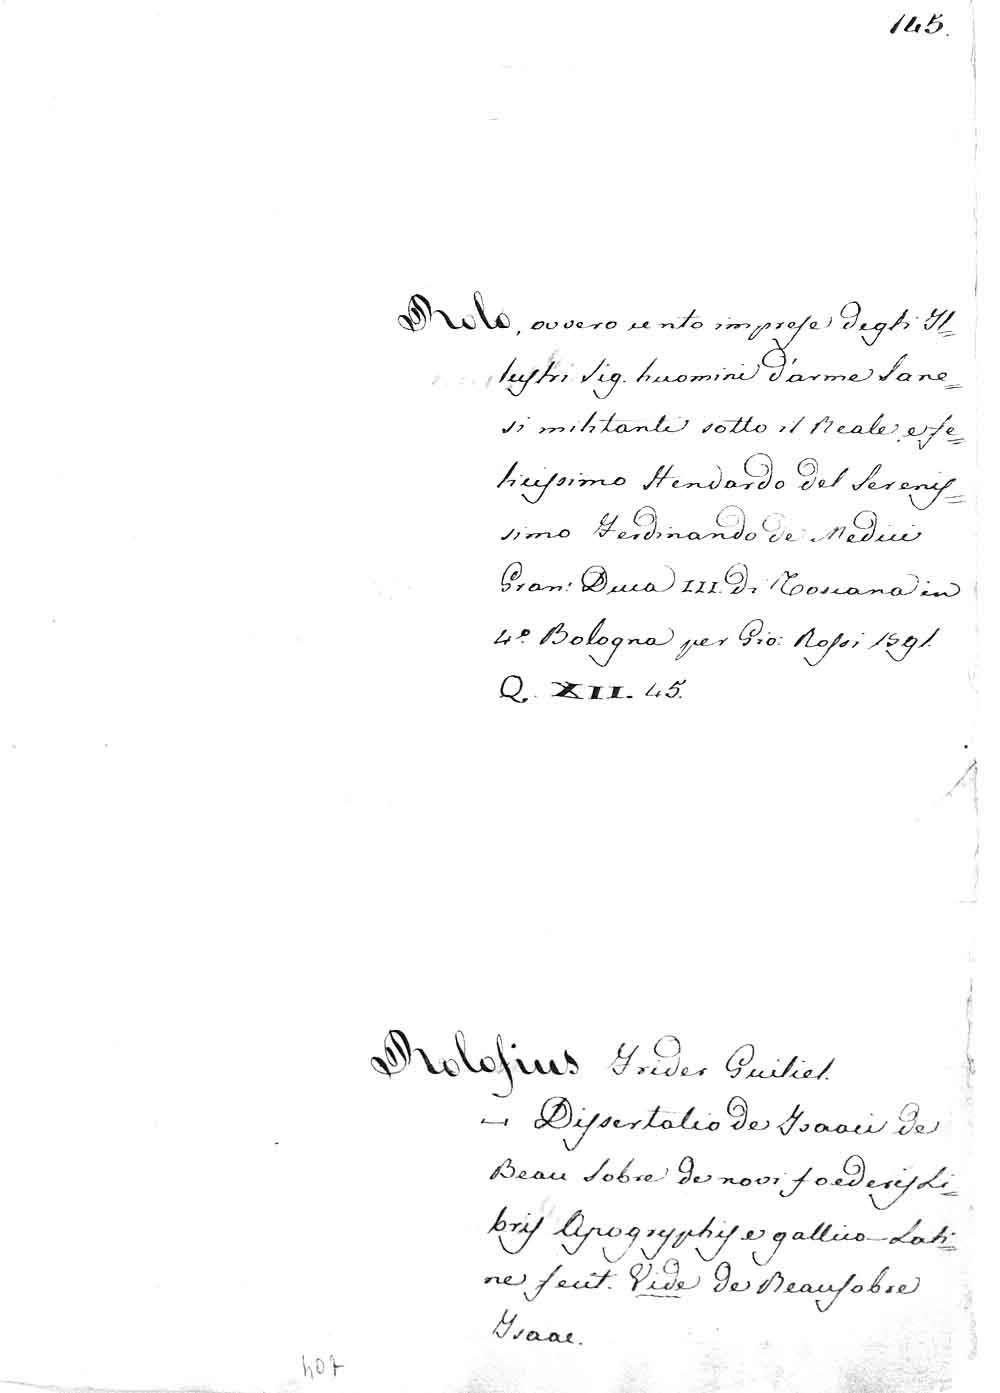 145.
Rolo, ovvero cento imprese degli Il=
lustri Sig. huomini d'arme Sane=
si militanti sotto il Reale, e fe=
licissimo Stendardo del Serenis=
simo Ferdinando de Medici
Gran: Duca III. di Toscana in
4º. Bologna per Gio: Rossi 1591.
Q. XII. 45.
Rolofius Frider Guiliel.
— Dissertatio de Isaaci de
Beau Sobre de novi foederis Li=
bris Apogryphis e gallico - Lati=
ne fecit. Vide de Beausobre
Isaac.
407